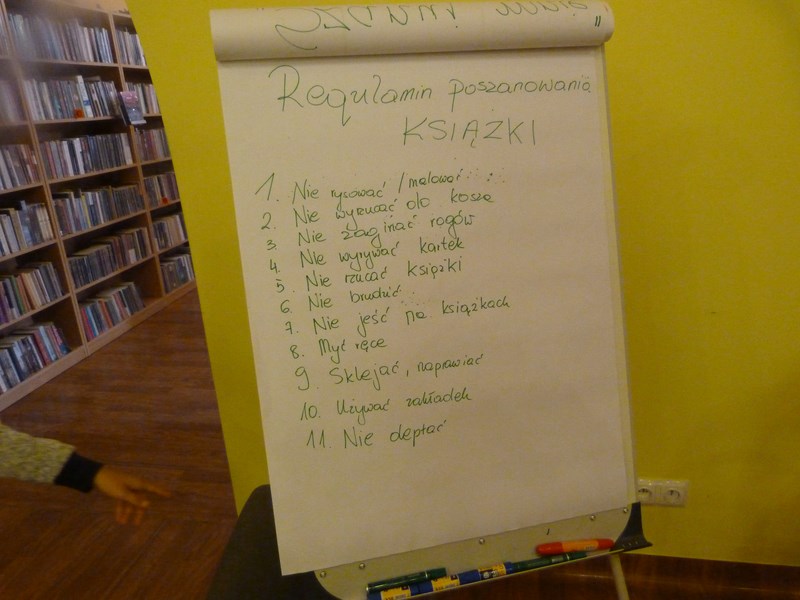 Regulamin poszanowania
KSIĄZKI
1. Nie rysować / malować
2. Nie wyrzucać do kosza
3. Nie zaginać rogów
4. Nie wyrywać kartek
5. Nie rzucać książki
6. Nie brudzić
7. Nie jeść na książkach
8. Myć ręce
9. Sklejać, naprawiać
10. Używać zakładek
11. Nie deptać